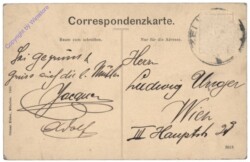 Correspondenzkarte.
Raum zum schreiben.
Nur für die Adresse.
Sei gegrüsst
Gruss auf die l. Mutter
Jacques
Adolf
Herrn
Ludwig Unger
Wien
III Hauptstr